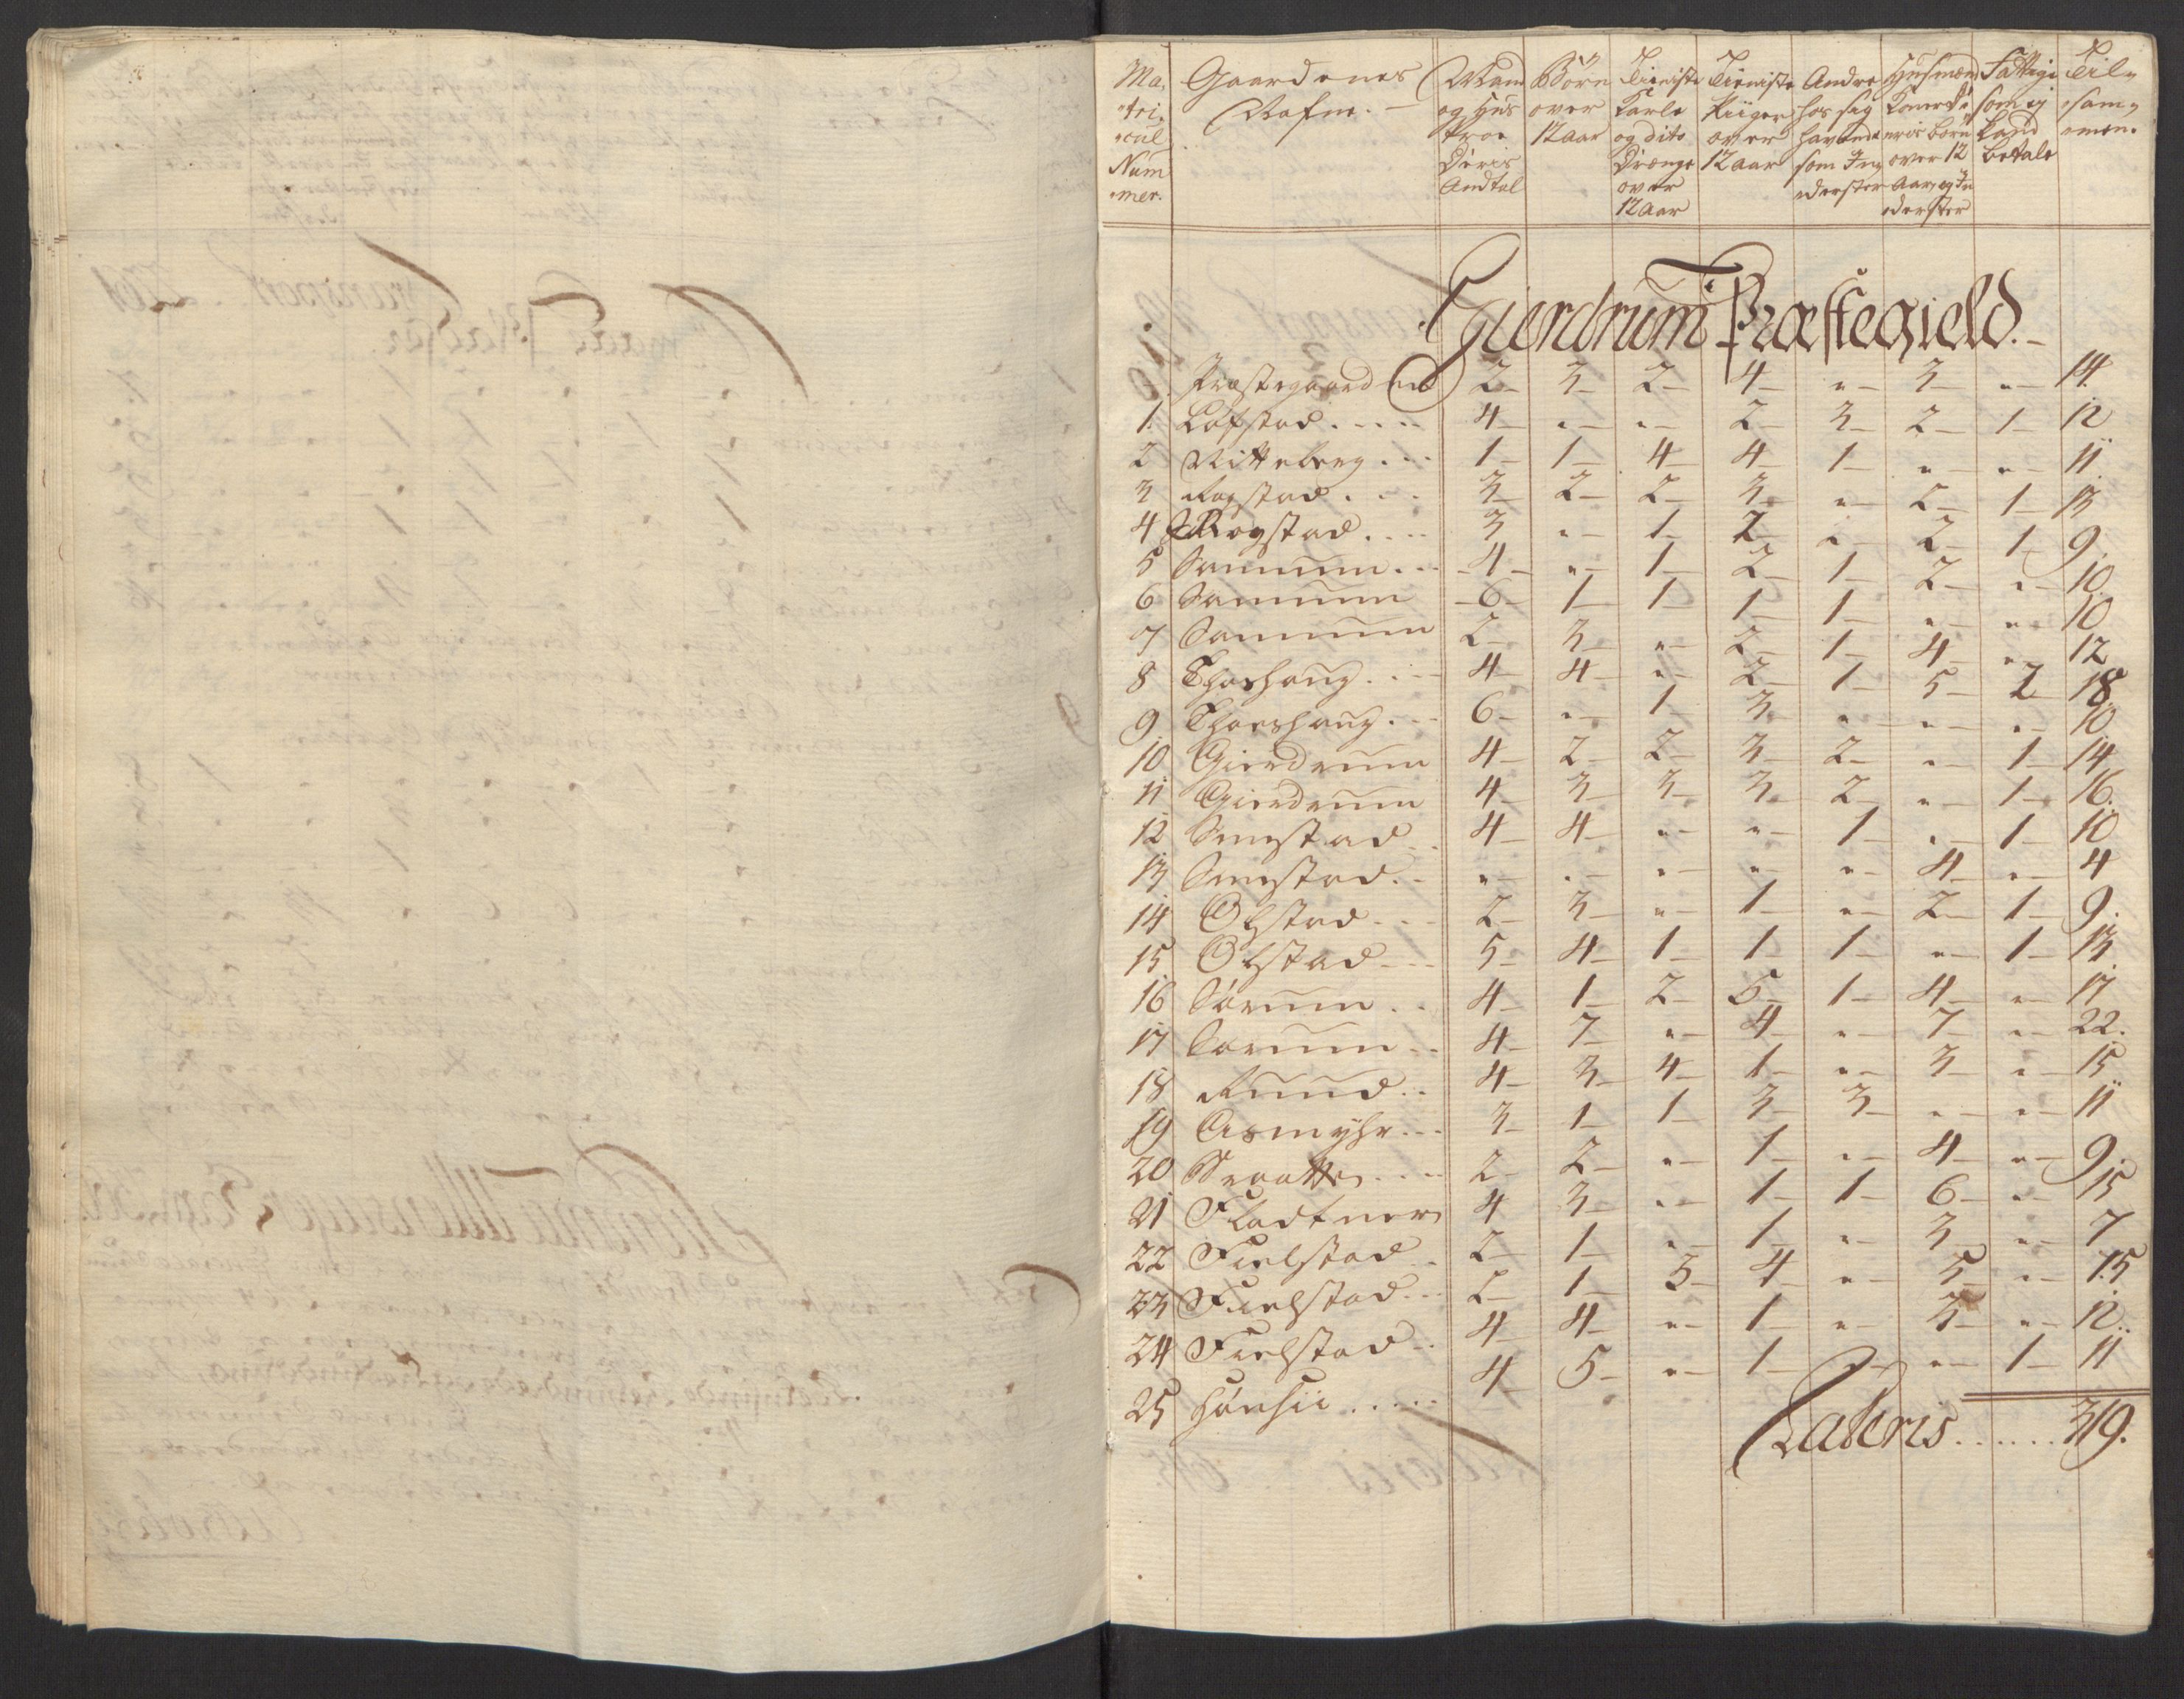 Ma, Gaardenes Mand Börn Tieniste Tieniste Andre Husmæn Fattige Til,
tri, Nafne. og Hus over Karle Piiger hos sig Koner de som ej sam,
cul Troe 12 aar og dito over havende eris börn kand men.
Num Deris Drænge 12 aar som In, over 12 betale
mer. Andtal over derster Aar, og In
12 Aar derster
Gierdrum Præstegield.
Præstegaarden 2 3 2 4 " 3 " 14.
1. Löfstad 4 " " 2 3 2 1 12
2 Nitteberg 1 1 4 4 1 " " 11
3 Rogstad 3 2 2 3 " 2 1 13
4 Rogstad 3 " 1 2 " 2 1 9.
5 4 " 1 2 1 2 " 10.
6 6 1 1 1 1 " " 10
7 2 3 " 2 1 4 " 12
8 Thorshoug 4 4 " 2 1 5 2 18
9. Thorshoug 6 " 1 3 " " " 10
10 Gierdrum 4 2 2 3 2 " 1 14
11 Gierdrum 4 3 3 3 2 " 1 16.
12 4 4 " " 1 " 1 10
13 " " " " " 4 " 4
14 Ölstad 2 3 " 1 " 2 1 9.
15 Ölstad 5 4 1 1 1 " 1 13
16 Sörum 4 1 2 5 1 4 " 17
17 Sörum 4 7 " 4 " 7 " 22.
18 Ruud 4 3 4 1 " 3 " 15
19 Asmyhr 3 1 1 3 3 " " 11
20 Braatte 2 2 " 1 " 4 " 9.
21 Fladtner 4 3 " 1 1 6 " 15
22 Fielstad 2 1 " 1 " 3 " 7
23 Fielstad 2 1 3 4 " 5 " 15
24 Fielstad 4 4 " 1 " 3 " 12.
25 4 5 " 1 " " 1 11
Lateris 319.